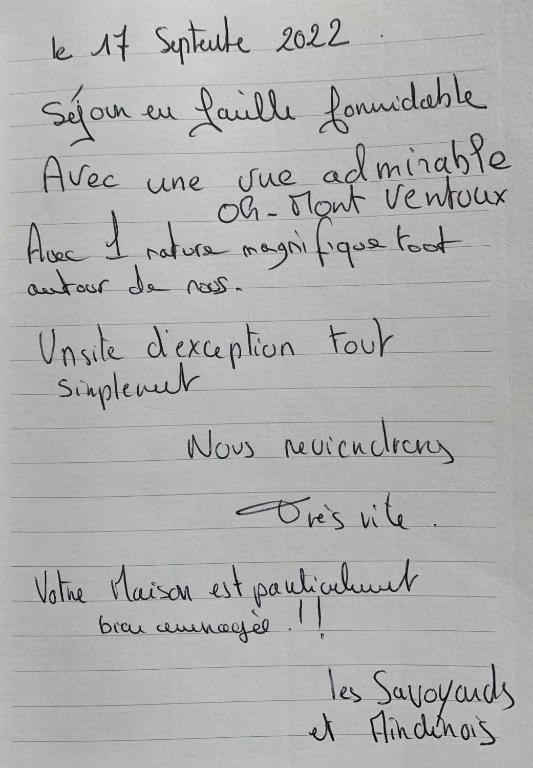 le 17 Septembre 2022.
Séjour en famille formidable
Avec une vue admirable
Oh-Mont Ventoux
Avec 1 nature magnifique tout
autour de nous.
Un site d'exception tout
simplement
Nous reviendrons
Très vite.
Votre Maison est particulièrement
bien aménagée.!!
les Savoyards
et